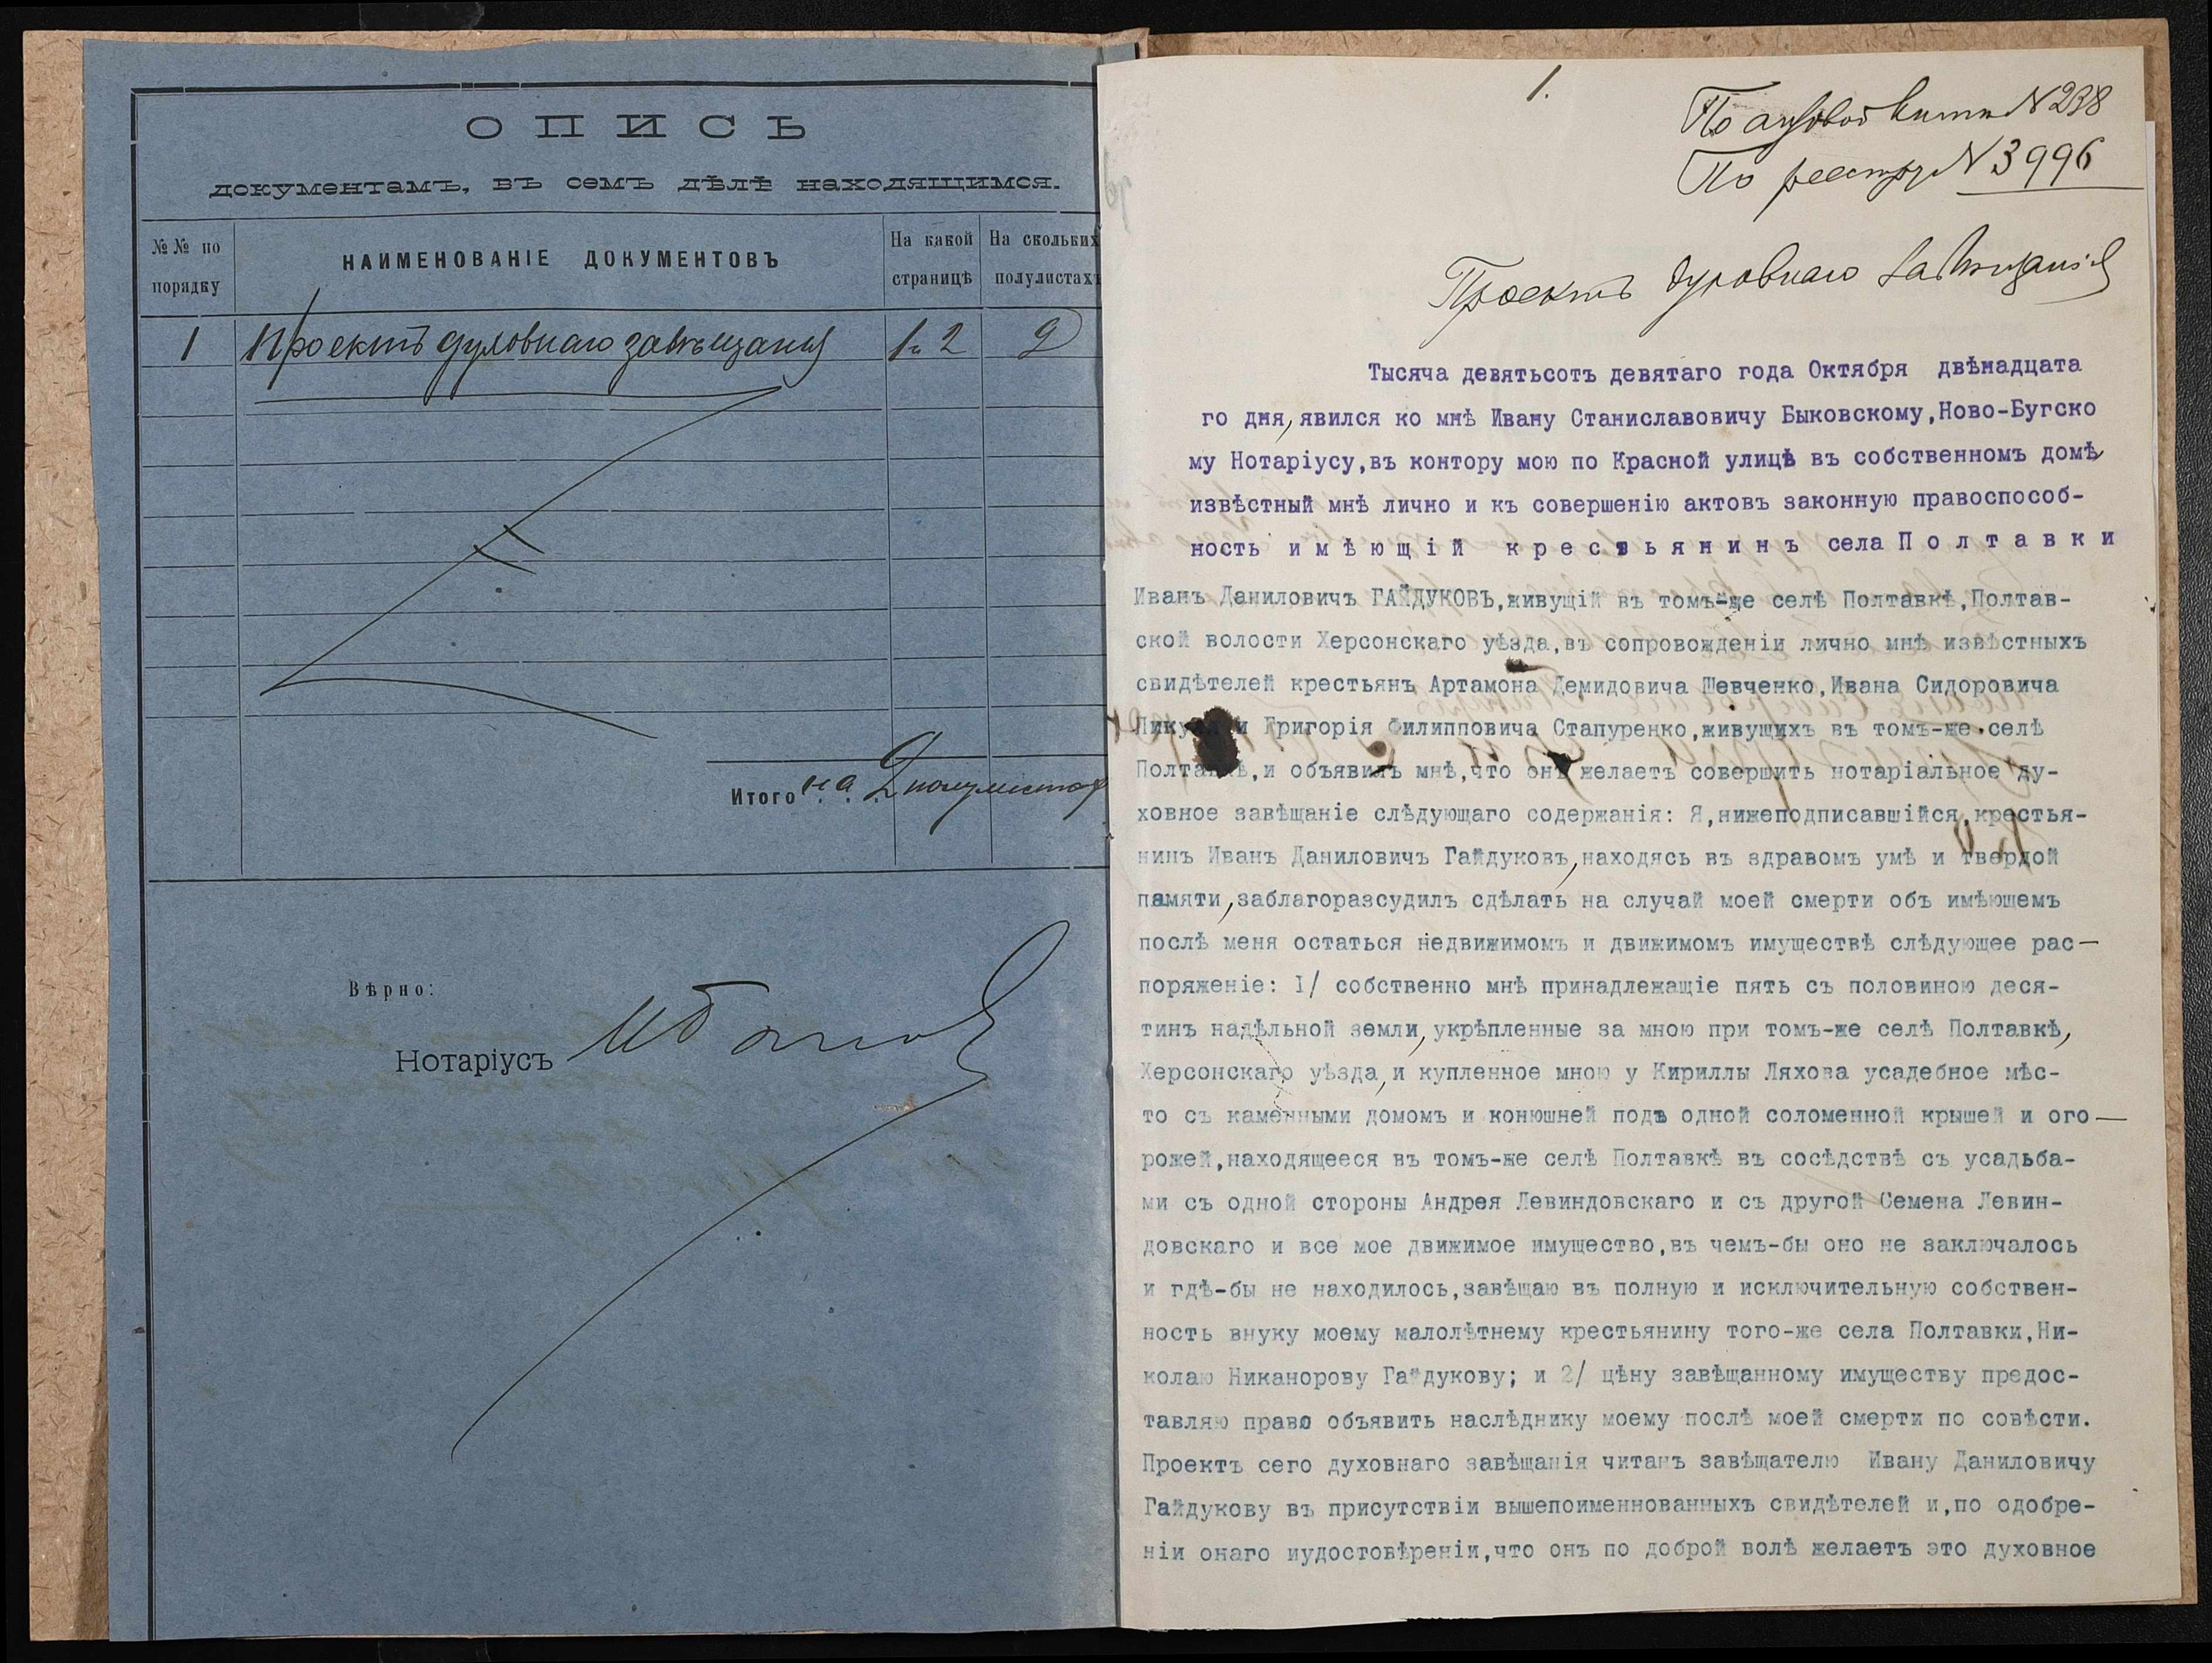 ОПИСЬ
документамъ, въ семъ дѣлѣ находящимся.
№№ по порядку
НАИМЕНОВАНІЕ ДОКУМЕНТОВЪ
На какой страницѣ
На сколькихъ полулистахъ
1 Проектъ духовнаго завѣщанія 1-2 2
Итого на 2 полулистах
Вѣрно:
Нотаріусъ
1.
По актовой книгѣ N 238
По реестру N 3996
Проектъ духовнаго завѣщанія
Тысяча девятьсотъ девятаго года Октября двѣнадцата
го дня, явился ко мнѣ Ивану Станиславовичу Быковскому,Ново-Бугско
му Нотаріусу,въ контору мою по Красной улицѣ въ собственномъ домѣ,
извѣстный мнѣ лично и къ совершенію актовъ законную правоспособ-
ность имѣющій крестьянинъ села Полтавки
Иванъ Даниловичъ ГАЙДУКОВЪ,живущій въ томъ-же селѣ Полтавкѣ,Полтав-
ской волости Херсонскаго уѣзда,въ сопровожденіи лично мнѣ извѣстныхъ
свидѣтелей крестьянъ Артамона Демидовича Шевченко,Ивана Сидоровича
и Григорія Филипповича Стапуренко,живущихъ въ томъ-же селѣ
Полтавкѣ,и объявилъ мнѣ,что онъ желаетъ совершить нотаріальное ду-
ховное завѣщаніе слѣдующаго содержанія: Я,нижеподписавшійся,крестья-
нинъ Иванъ Даниловичъ Гайдуковъ,находясь въ здравомъ умѣ и твердой
памяти,заблагоразсудилъ сдѣлать на случай моей смерти объ имѣющемъ
послѣ меня остаться недвижимомъ и движимомъ имуществѣ слѣдующее рас-
поряженіе: I/ собственно мнѣ принадлежащіе пять съ половиною деся-
тинъ надѣльной земли,укрѣпленные за мною при томъ-же селѣ Полтавкѣ,
Херсонскаго уѣзда,и купленное мною у Кириллы Ляхова усадебное мѣс-
то съ каменными домомъ и конюшней подъ одной соломенной крышей и ого-
рожей,находящееся въ томъ-же селѣ Полтавкѣ въ сосѣдствѣ съ усадьба-
ми съ одной стороны Андрея Левиндовскаго и съ другой Семена Левин-
довскаго и все мое движимое имущество,въ чемъ-бы оно не заключалось
и гдѣ-бы не находилось,завѣщаю въ полную и исключительную собствен-
ность внуку моему малолѣтнему крестьянину того-же села Полтавки,Ни-
колаю Никанорову Гайдукову; и 2/ цѣну завѣщанному имуществу предос-
тавляю право объявить наслѣднику моему послѣ моей смерти по совѣсти.
Проектъ сего духовнаго завѣщанія читанъ завѣщателю Ивану Даниловичу
Гайдукову въ присутствіи вышепоименнованныхъ свидѣтелей и,по одобре-
ніи онаго иудостовѣреніи,что онъ по доброй волѣ желаетъ это духовное